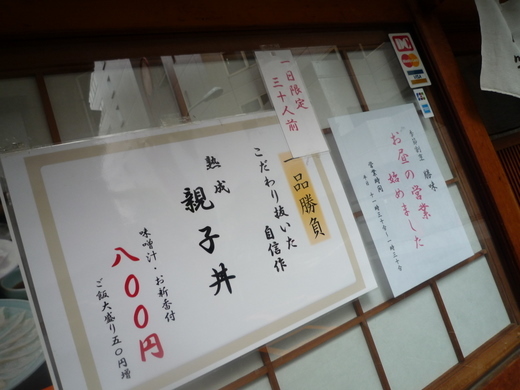 一日限定
三十人前
一品勝負
こだわり抜いた
自信作
熟成
親子丼
味噌汁・お新香付
八〇〇円
ご飯大盛り五〇円増
季節創菜 膳味
お昼の営業
始めました
営業時間
MasterCard